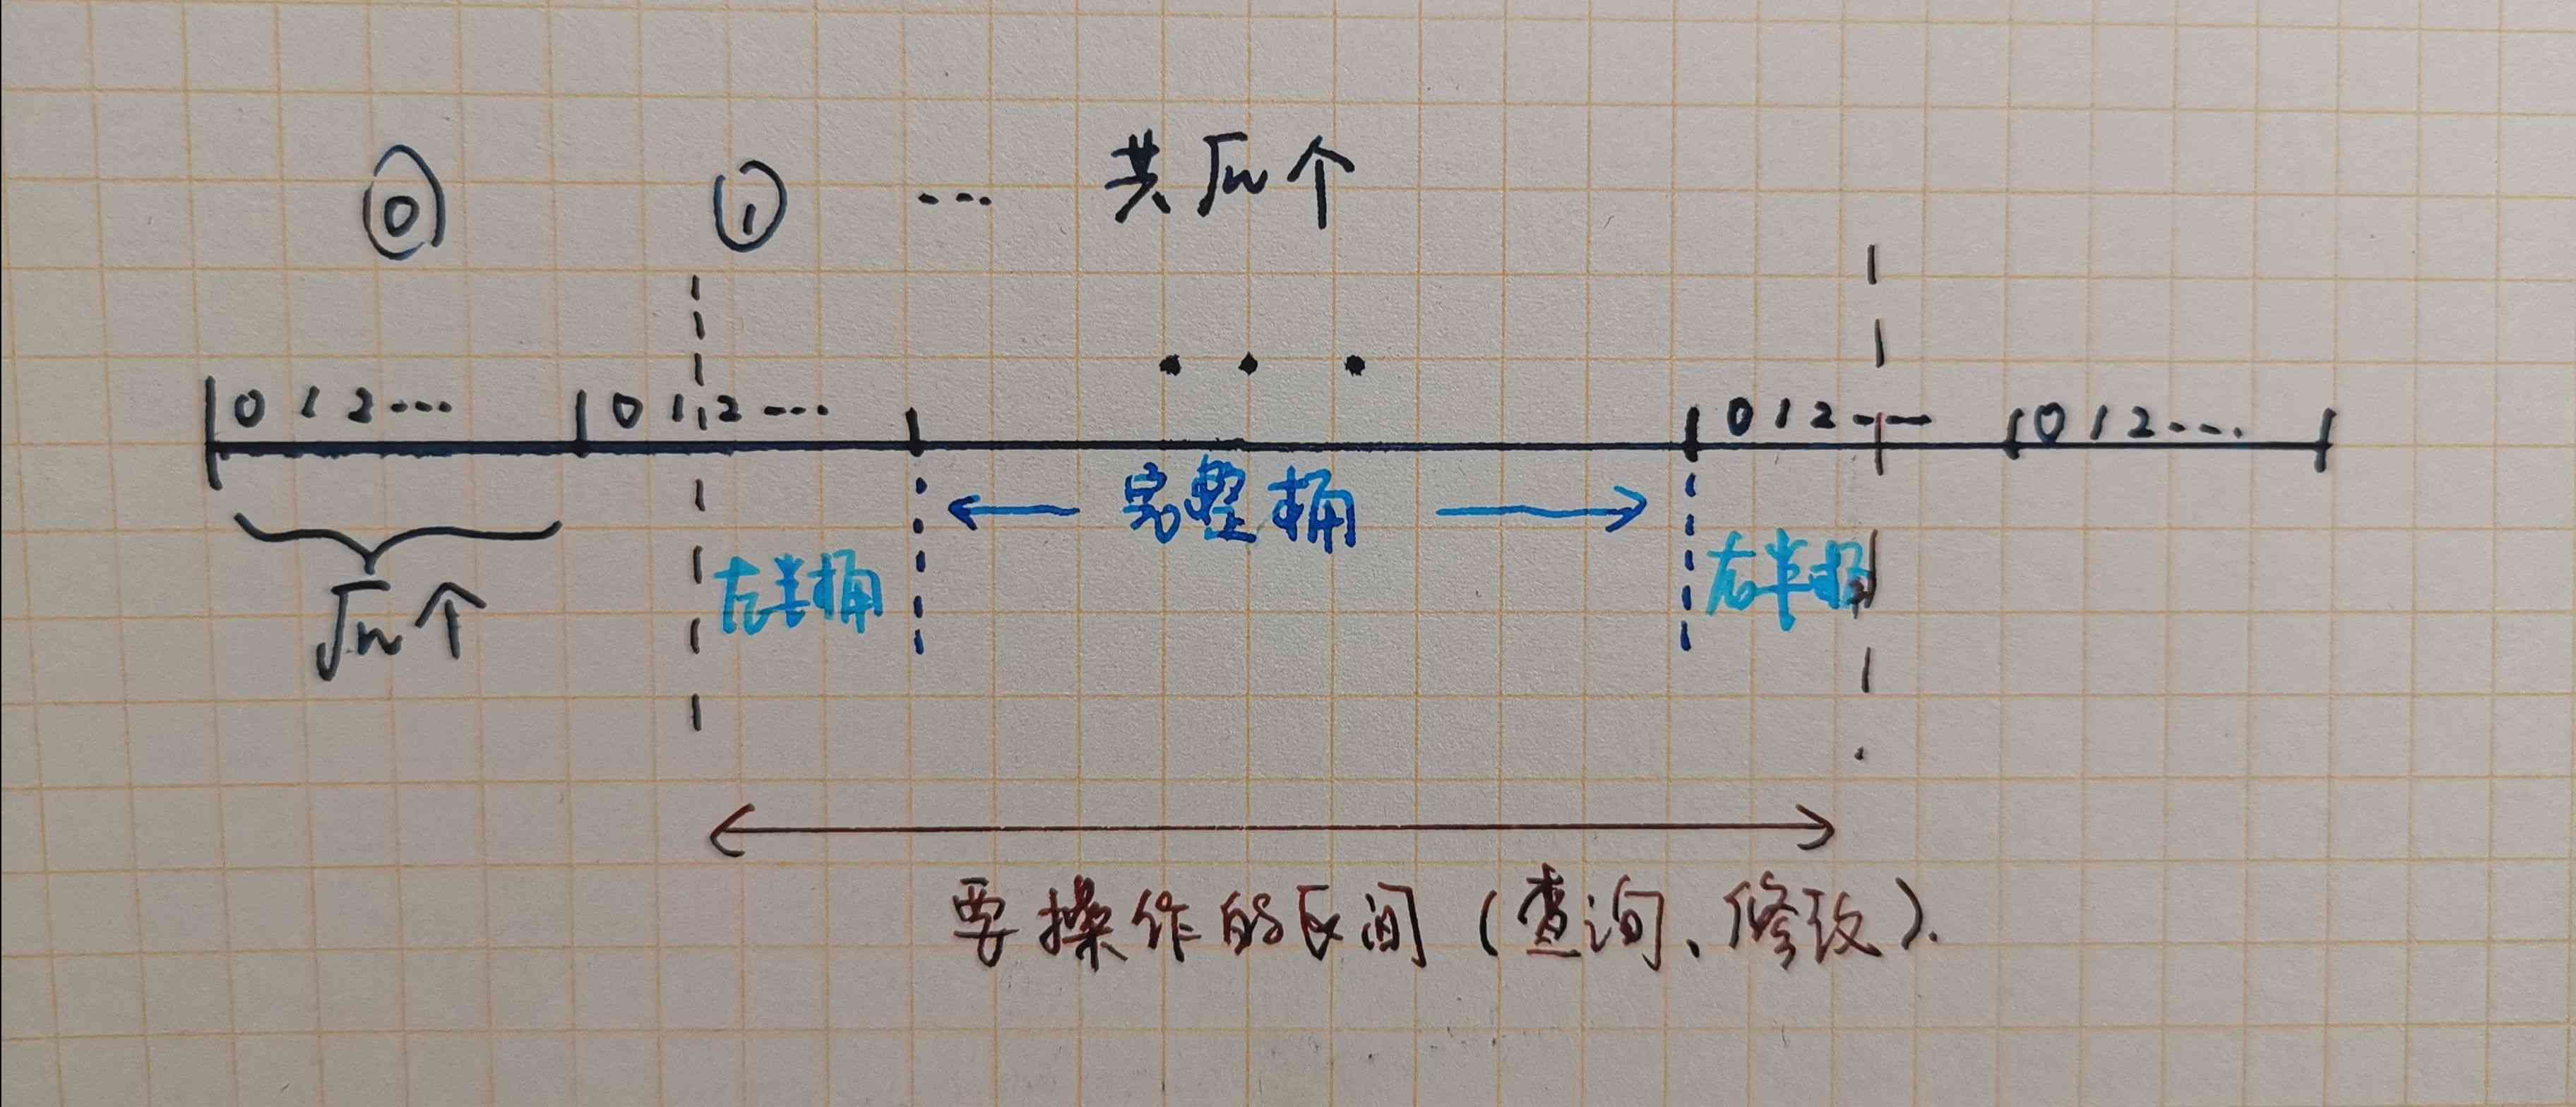 ⓪ ① ... 共√n个
0 1 2 ... 0 1 2 ... . . . 0 1 2 ... 0 1 2 ...
← 完整桶 →
√n个 左半桶 右半桶
要操作的区间(查询、修改).